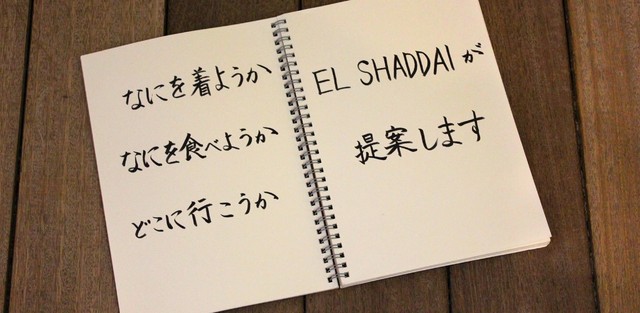 なにを着ようか
なにを食べようか
どこに行こうか
EL SHADDAIが
提案します